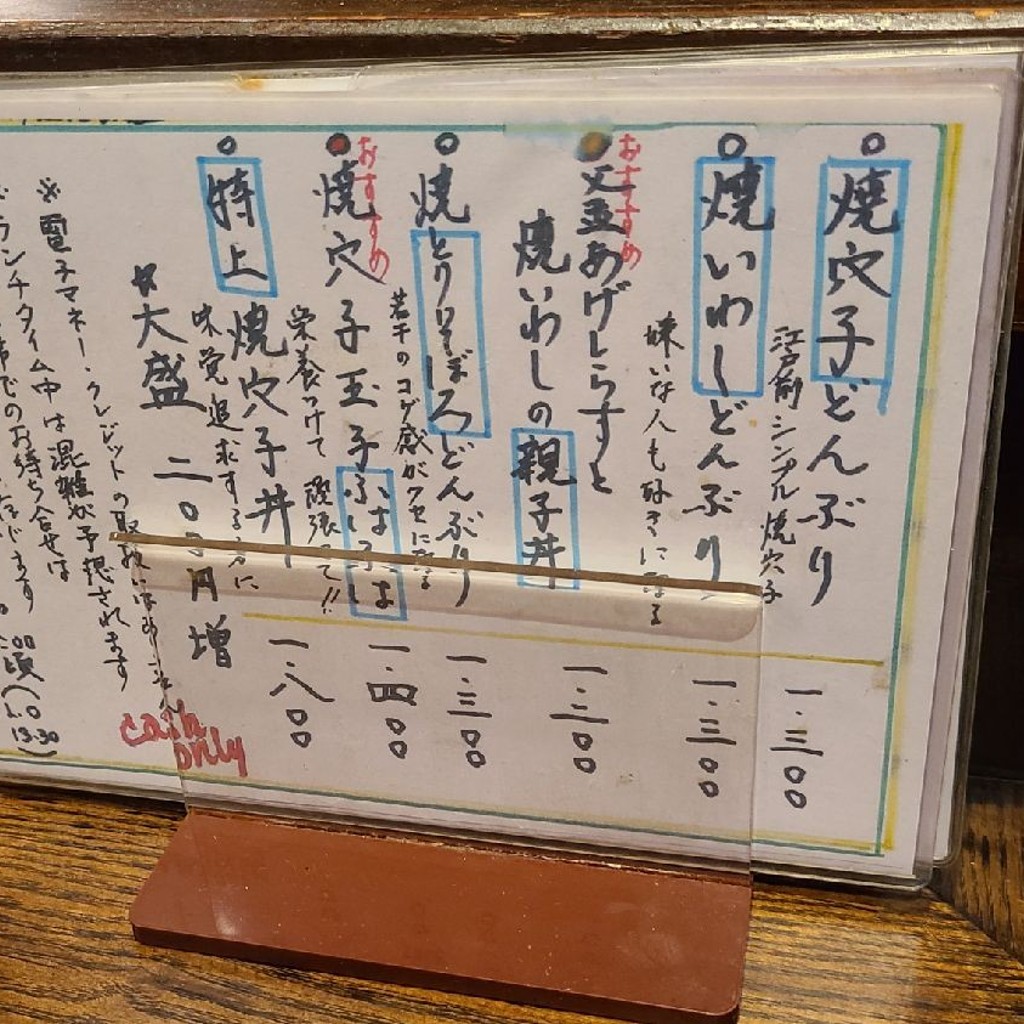 焼穴子どんぶり
江戸前シンプル焼穴子
一.三〇〇
焼いわしどんぶり
嫌いな人も好きになる
一.三〇〇
おすすめ
釜あげしらすと
焼いわしの親子丼
一.三〇〇
焼とりそぼろどんぶり
若干のコゲ感がクセになる
一.三〇〇
おすすめ
焼穴子玉子ふはふは
栄養つけて頑張って!!
一.四〇〇
特上焼穴子丼
味覚追求する方に
一.八〇〇
大盛 二〇〇円増
cash only
※電子マネー・クレジットの取扱いはありません
ランチタイム中は混雑が予想されます
席でのお待ち合せは
頃
13.30